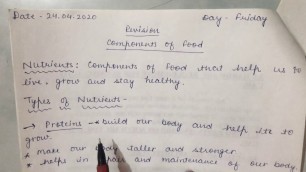 Date - 24.04.2020 Day - Friday
Revision
Components of food
Nutrients: Components of food that help us to
live, grow and stay healthy.
Types of Nutrients -
→ Proteins - * build our body and help it to
grow.
* make our body taller and stronger
* helps in repair and maintenance of our body.